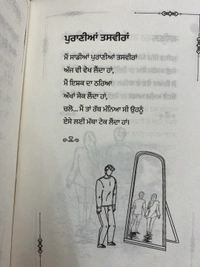 ਪੁਰਾਣੀਆਂ ਤਸਵੀਰਾਂ
ਮੈਂ ਸਾਡੀਆਂ ਪੁਰਾਣੀਆਂ ਤਸਵੀਰਾਂ
ਅੱਜ ਵੀ ਵੇਖ ਲੈਂਦਾ ਹਾਂ,
ਮੈਂ ਇਸ਼ਕ ਦਾ ਠਰਿਆ
ਅੱਖਾਂ ਸੇਕ ਲੈਂਦਾ ਹਾਂ,
ਚਲੋ... ਮੈਂ ਤਾਂ ਰੱਬ ਮੰਨਿਆ ਸੀ ਉਹਨੂੰ
ਏਸੇ ਲਈ ਮੱਥਾ ਟੇਕ ਲੈਂਦਾ ਹਾਂ।